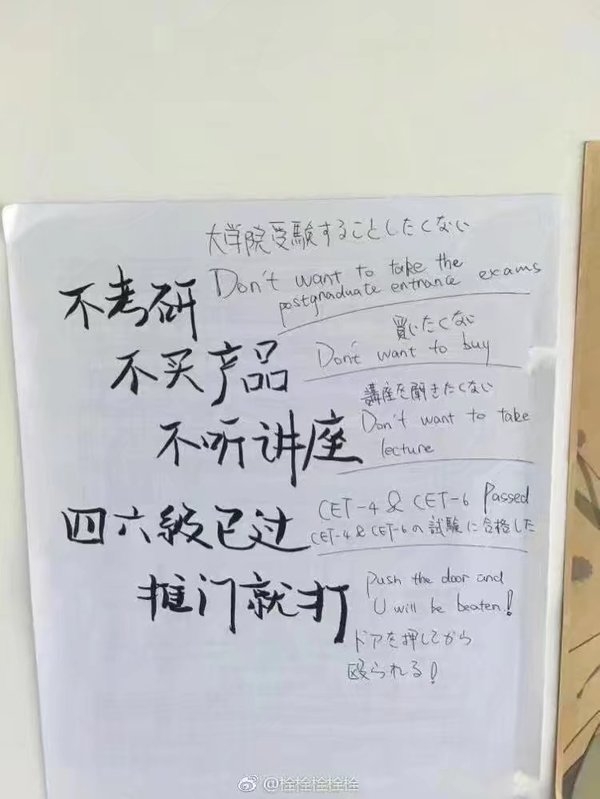 大学院受験することしたくない
不考研
Don't want to take the
postgraduate entrance exams
買いたくない
不买产品
Don't want to buy
講座を聞きたくない
不听讲座
Don't want to take
lecture
四六級已过
CET-4 & CET-6 Passed
CET-4 & CET-6の試験に合格した
推门就打
Push the door and
U will be beaten!
ドアを押してから
殴られる!
@栓栓栓栓栓